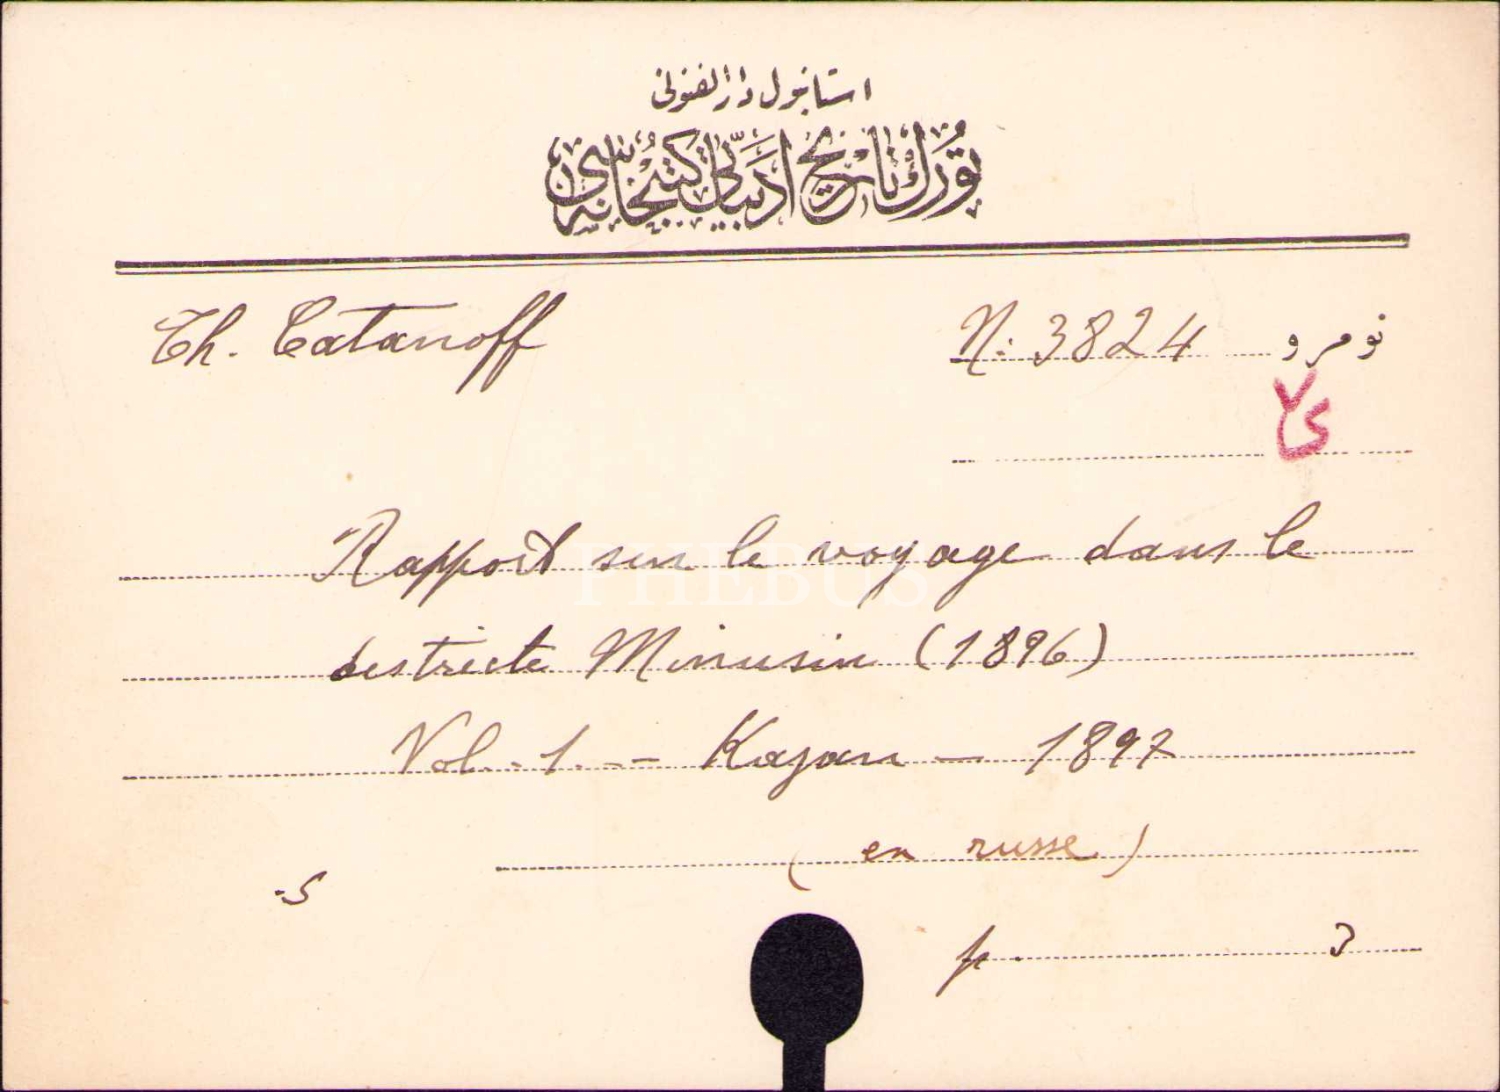 استانبول دار الفنونی
تورك تاریخ ادبیاتی كتبخانه‌سی
Th. Catanoff
N: 3824 نومرو
Rapport sur le voyage dans le
districte Minusin (1896)
Vol. 1. -- Kazan — 1897
(en russe)
p.
PHEBUS